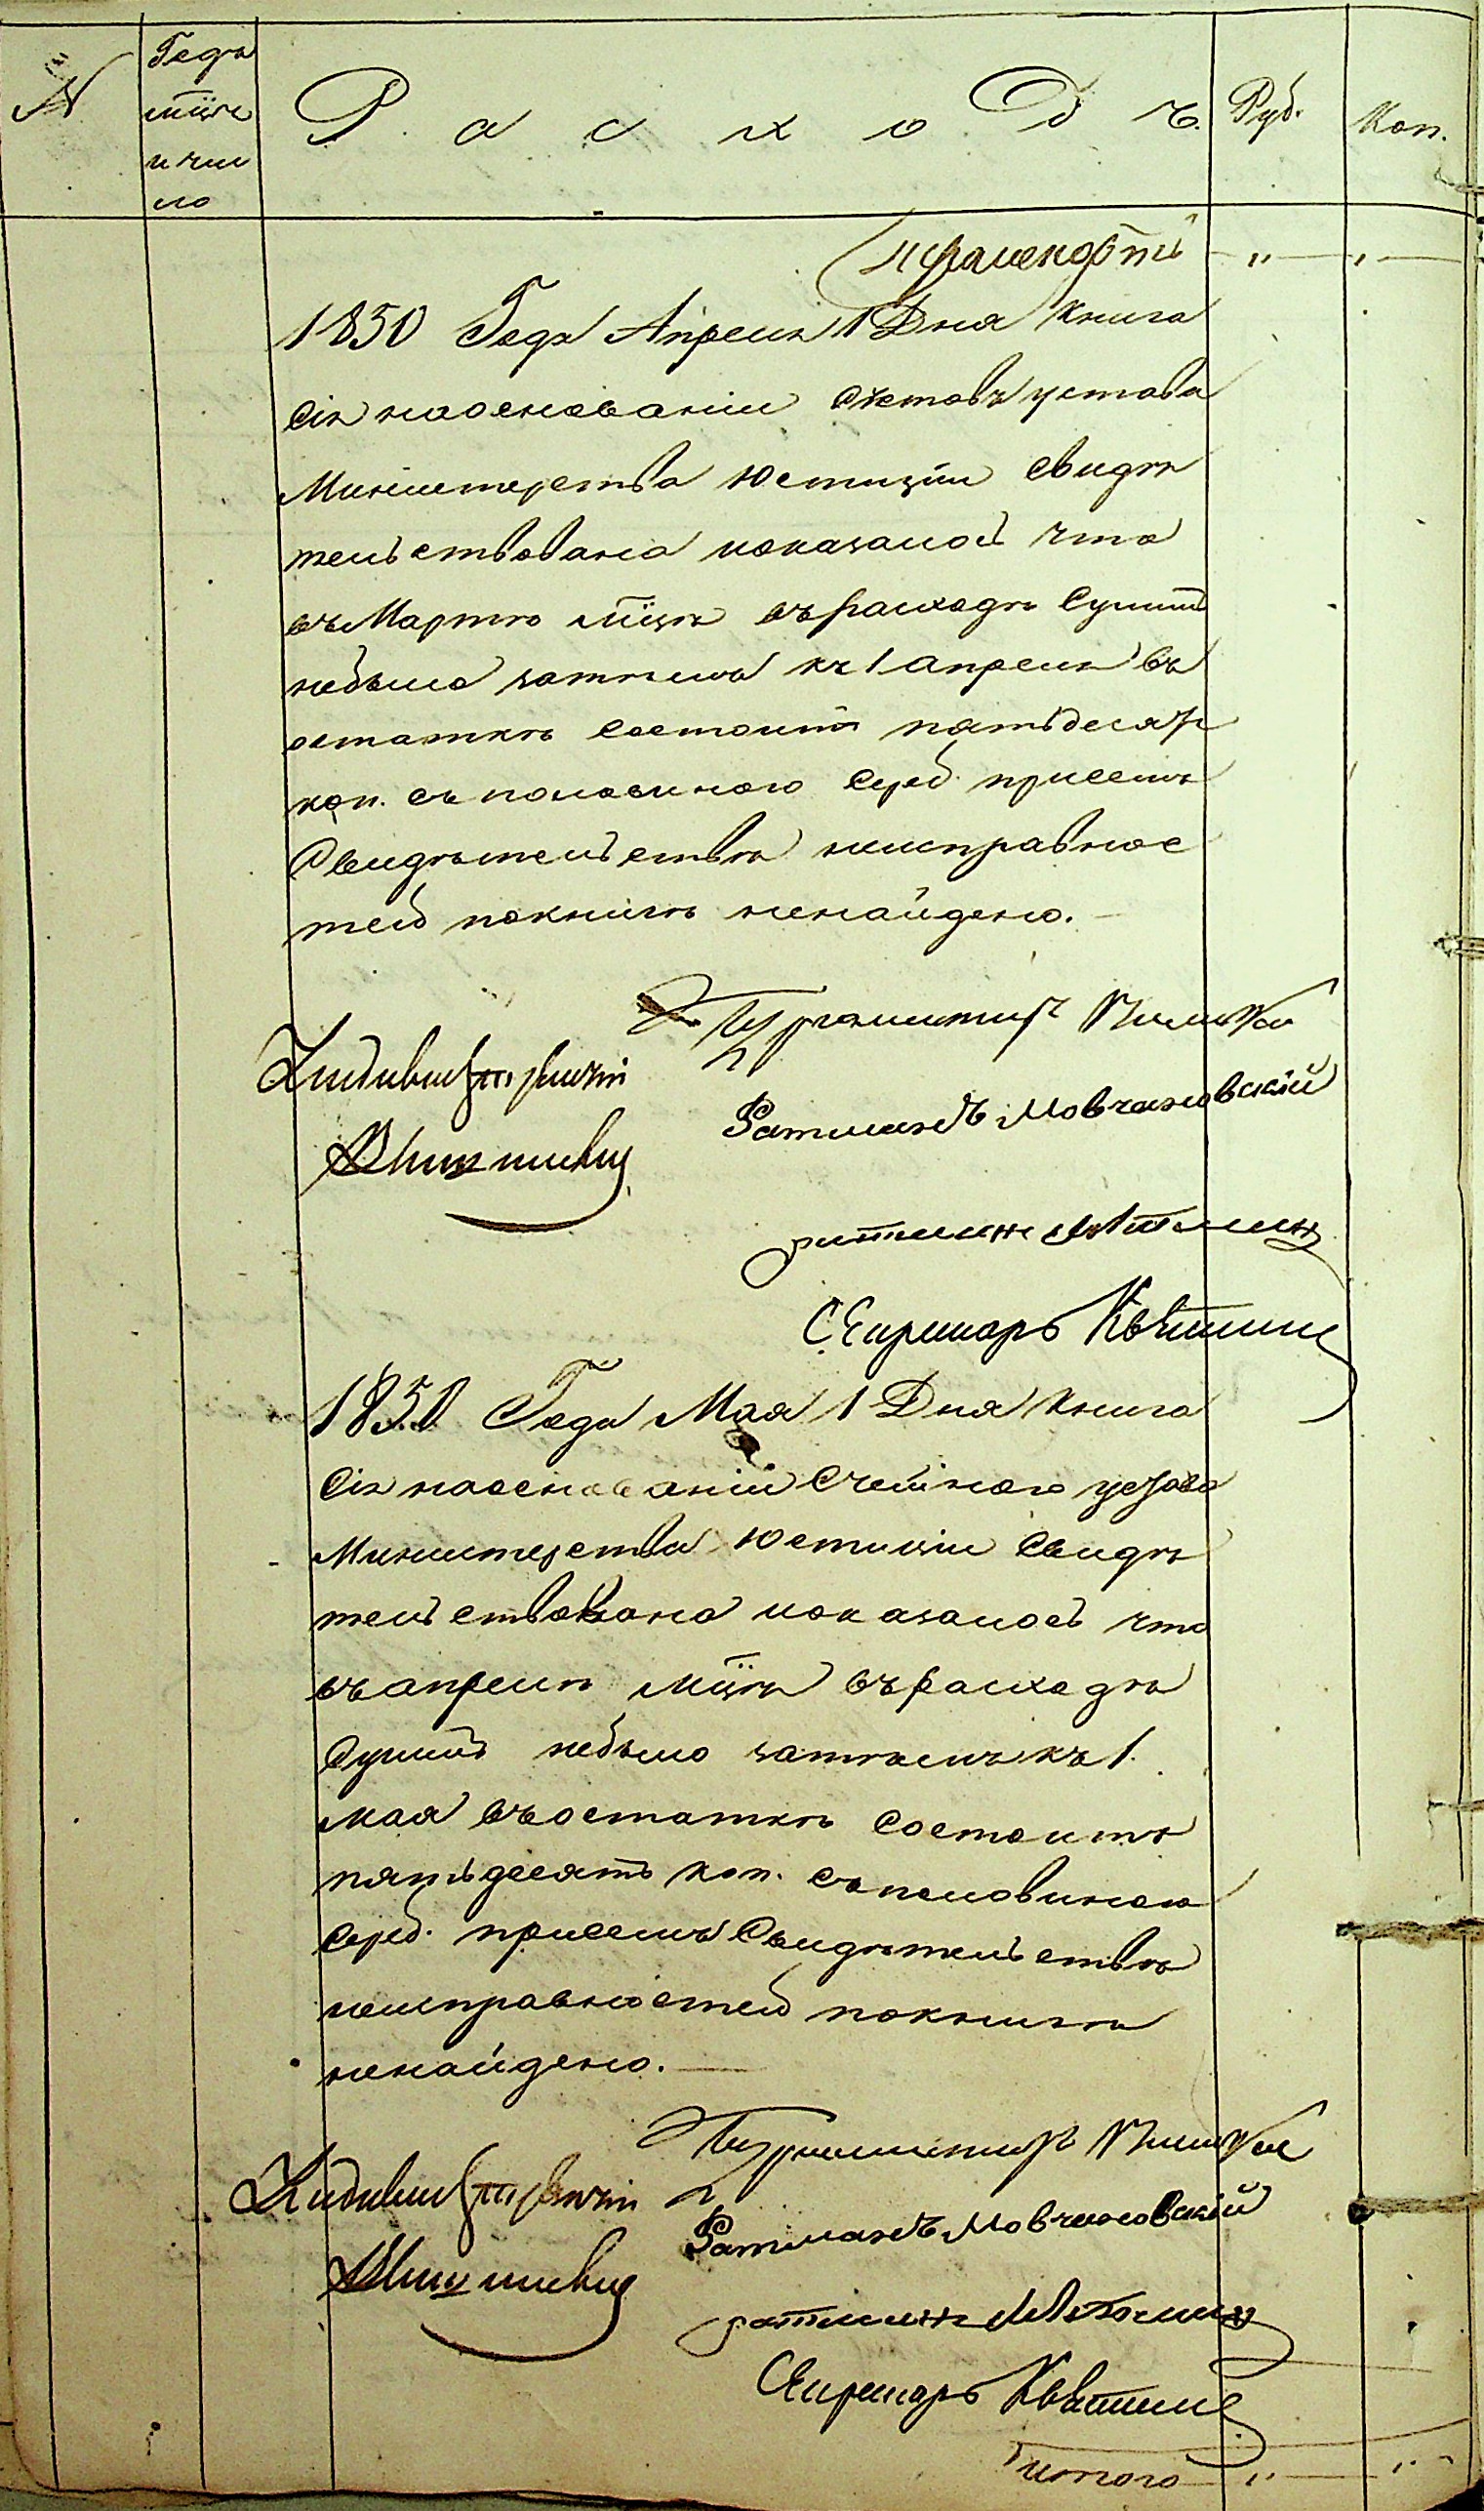 №
Года
мѣсяц
и чис
ло
Расходъ.
Руб.
Коп.
" "
1850 Года Апреля 1 Дня книга
сія наоснованіи Счетовъ устава
Министерства Юстиціи Свидѣ
тельствована показалось что
въ Мартѣ мцѣ въ расходѣ Суммъ
небыло затѣмъ къ 1 апреля въ
остаткѣ Состоитъ пятьдесятъ
коп. съ половиною Сереб. присемъ
Свидѣтельствѣ неисправнос
тей покнигѣ ненайдено.
Бургомистръ
Ратманъ Мовчановскій
ратманъ
Секретарь
1850 Года Мая 1 Дня Книга
Сія наоснованіи Счетного устава
Министерства Юстиціи Свидѣ
тельствована показалось что
въ апрелѣ мцѣ въ расходѣ
Суммъ небыло затѣмъ къ 1.
мая въ остаткѣ Состоитъ
пятьдесятъ коп. Съ половиною
Сереб. присемъ Свидѣтельствѣ
неисправностей покнигѣ
ненайдено.
Бургомистръ
Ратманъ Мовчановскій
ратманъ
Секретарь
итого " "